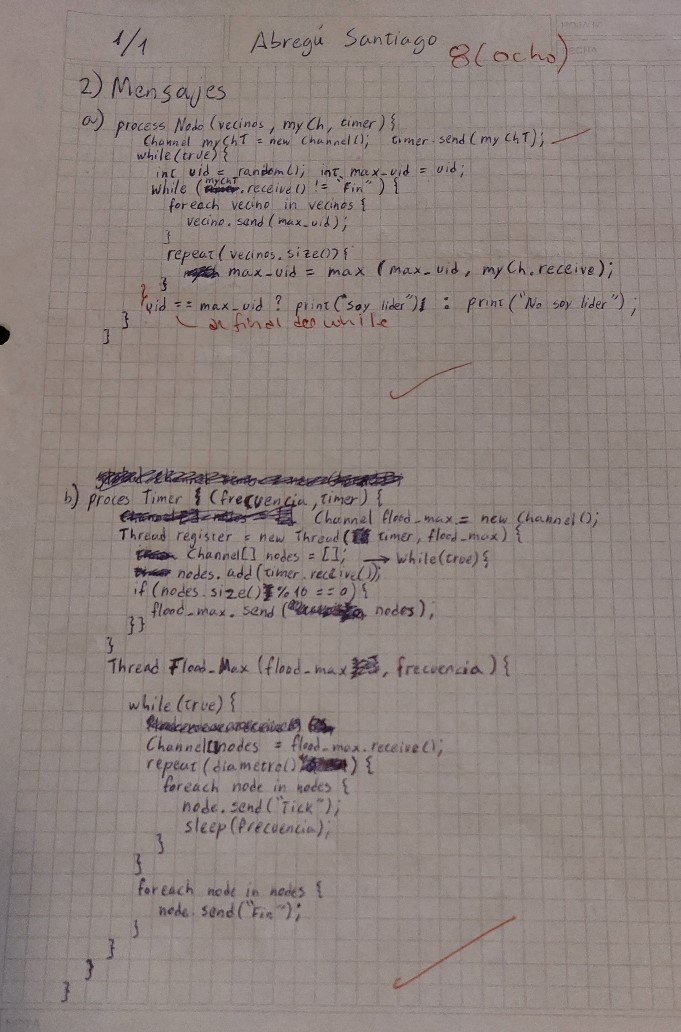 1/1 Abregú Santiago 8(ocho)
HOJA Nº
FECHA
2) Mensajes
a) process Nodo (vecinos, myCh, timer) {
Channel myChT = new Channel(); timer.send(myChT);
while(true){
int uid = random(); int max_uid = uid;
while (myChT.receive() != "Fin") {
foreach vecino in vecinos {
vecino.send(max_uid);
}
repeat(vecinos.size()){
max_uid = max (max_uid, myCh.receive);
}
} uid == max_uid ? print("soy lider") : print("No soy lider");
} al final del while
}
b) proces Timer (frecuencia, timer) {
Channel flood_max = new Channel();
Thread register = new Thread( timer, flood_max) {
Channel[] nodes = []; → while(true){
nodes.add(timer.receive());
if (nodes.size() % 10 == 0) {
flood_max.send ( nodes);
}}
}
Thread Flood_Max (flood_max, frecuencia) {
while(true) {
Channel[] nodes = flood_max.receive();
repeat (diametro() ) {
foreach node in nodes {
node.send("Tick");
sleep(frecuencia);
}
}
foreach node in nodes {
node.send("Fin");
}
}
}
}
NOTA